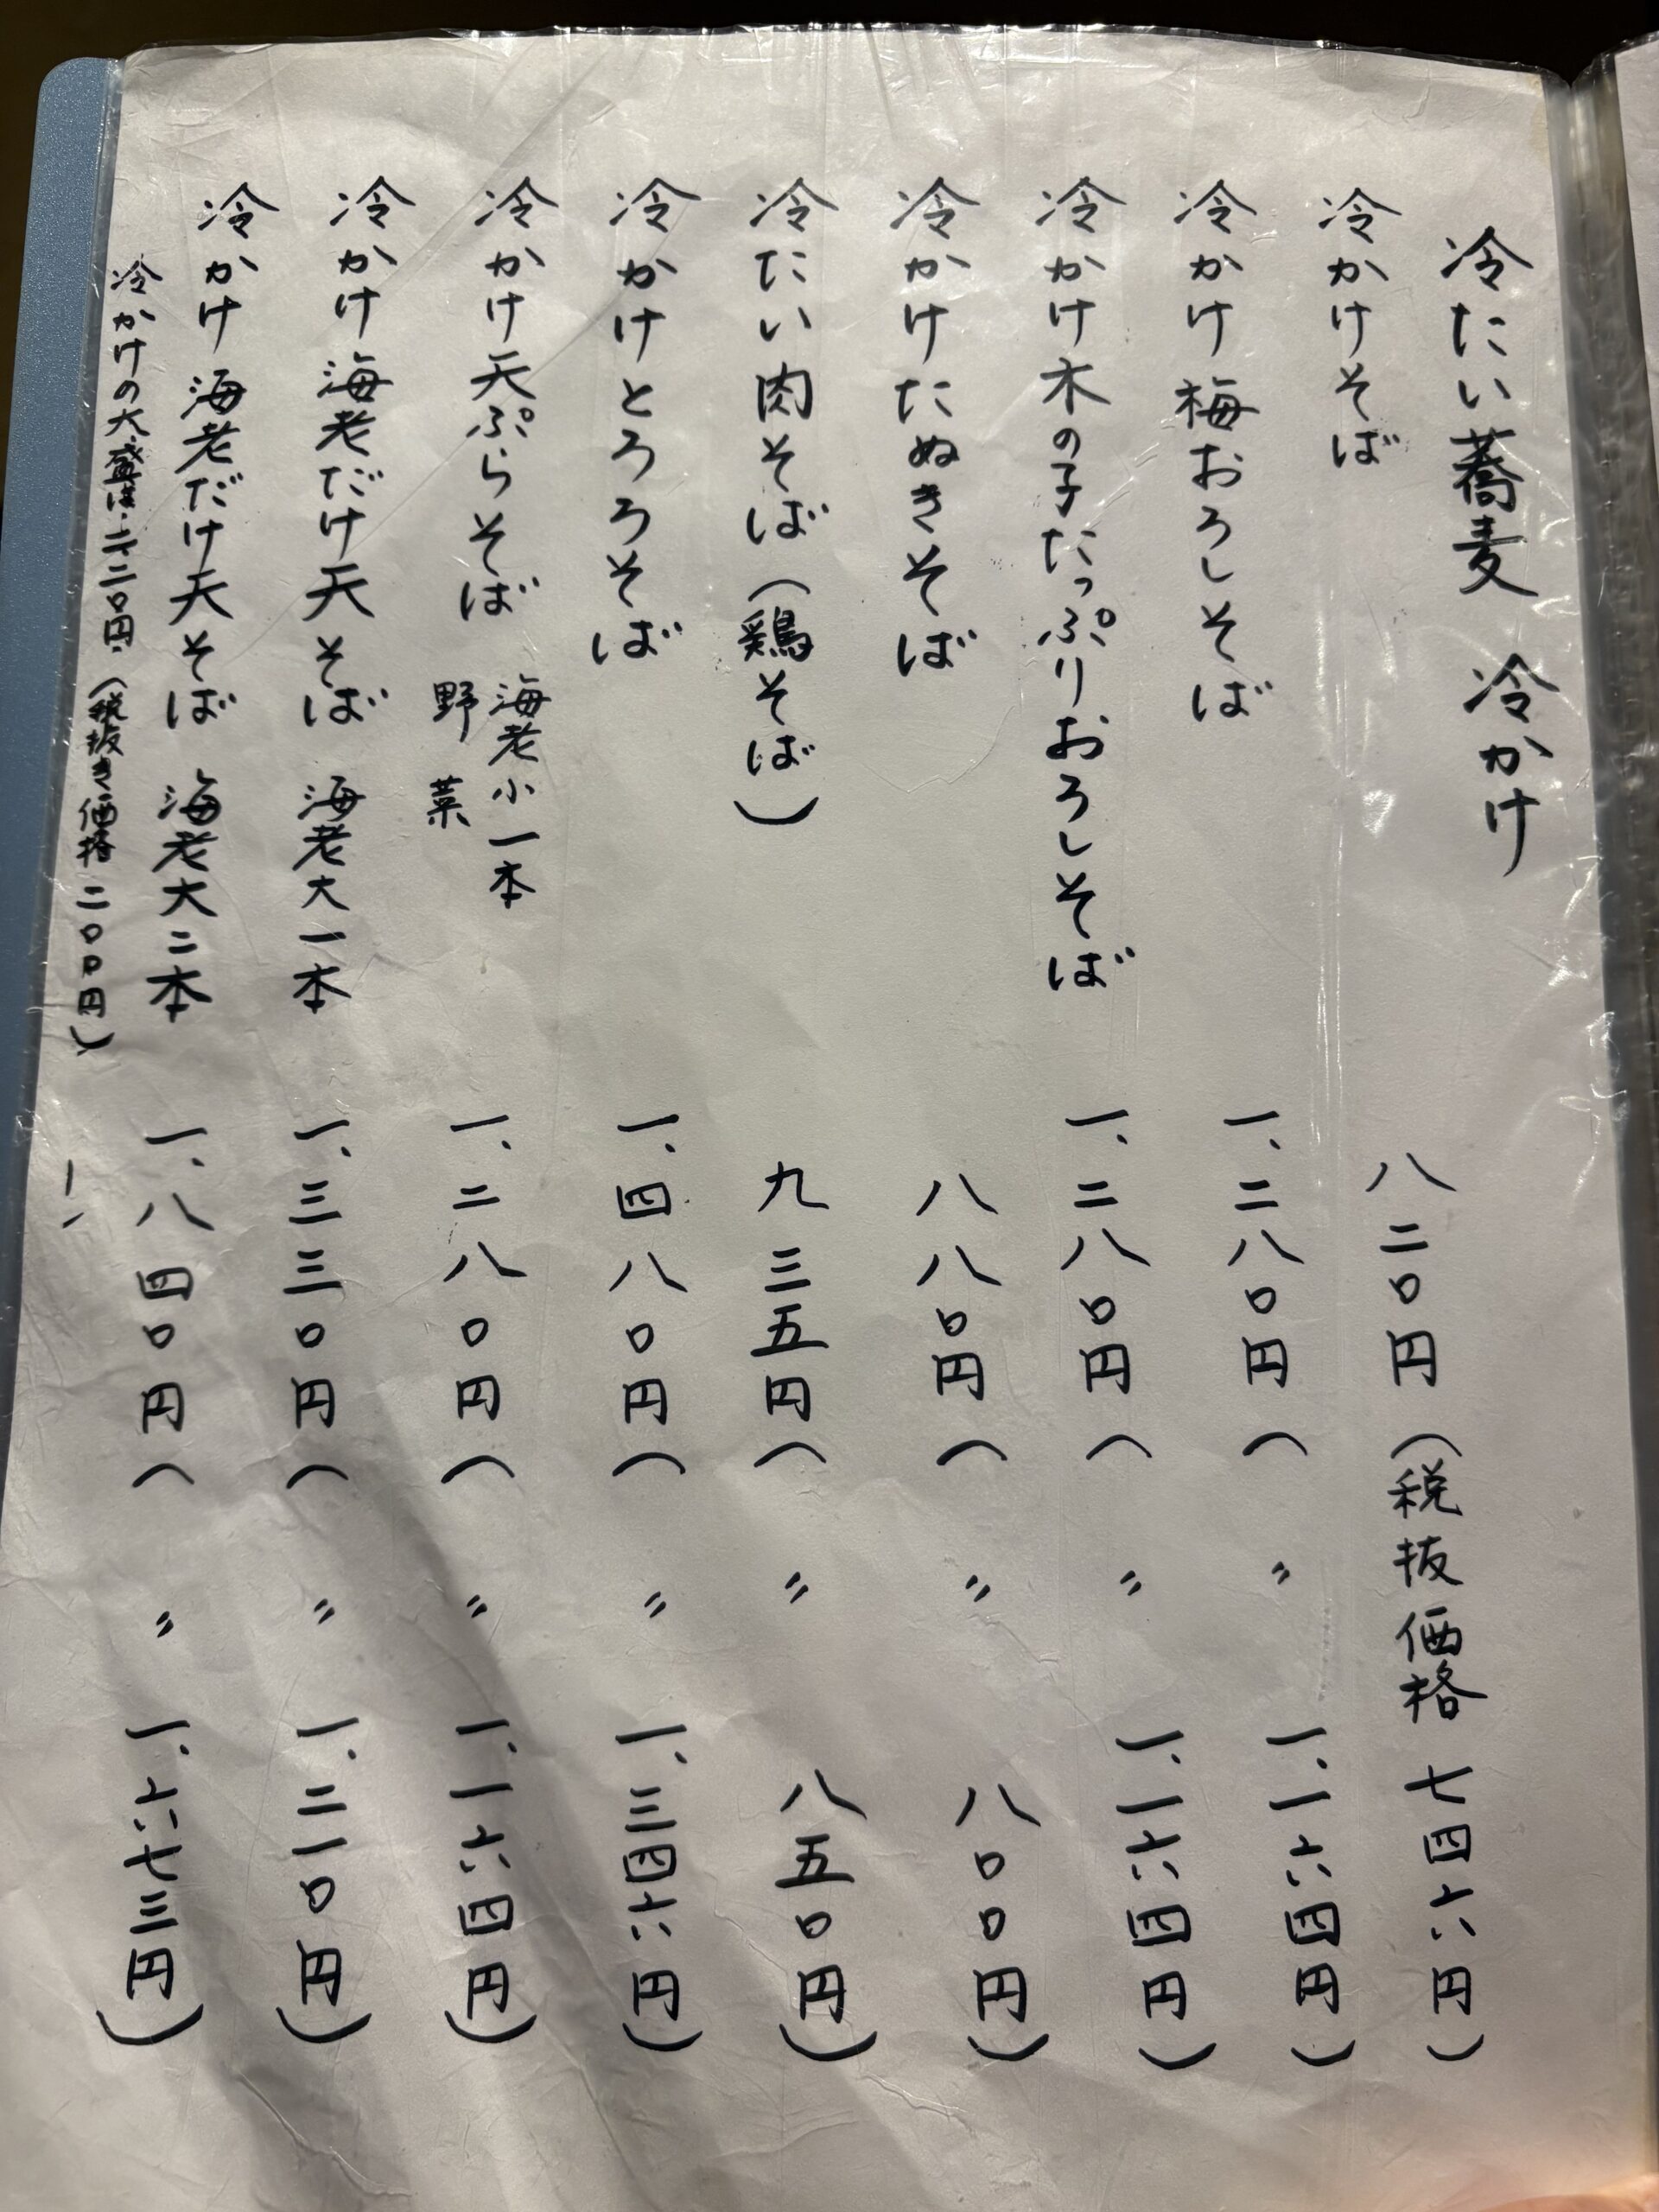 冷たい蕎麦 冷かけ
冷かけそば 八二〇円(税抜価格 七四六円)
冷かけ梅おろしそば 一、二八〇円( 〃 一、一六四円)
冷かけ木の子たっぷりおろしそば 一、二八〇円( 〃 一、一六四円)
冷かけたぬきそば 八八〇円( 〃 八〇〇円)
冷たい肉そば(鶏そば) 九三五円( 〃 八五〇円)
冷かけとろろそば 一、四八〇円( 〃 一、三四六円)
冷かけ天ぷらそば 海老小一本 野菜 一、二八〇円( 〃 一、一六四円)
冷かけ海老だけ天そば 海老大一本 一、三三〇円( 〃 一、二一〇円)
冷かけ海老だけ天そば 海老大二本 一、八四〇円( 〃 一、六七三円)
冷かけの大盛は二二〇円(税抜き価格 二〇〇円)